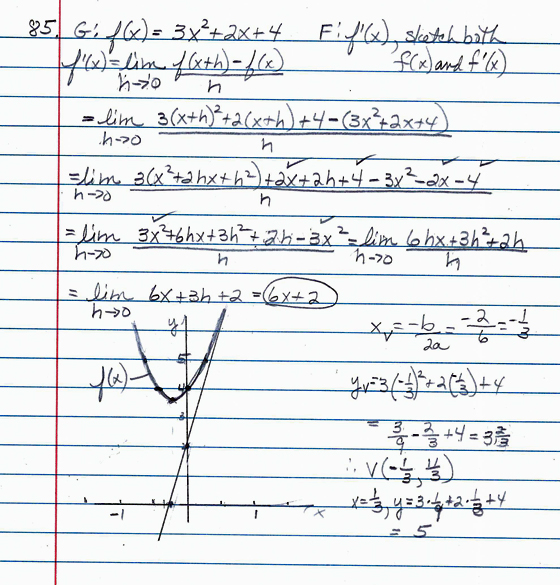 85. G: f(x) = 3x²+2x+4 F: f'(x), sketch both
f(x) and f'(x)
f'(x) = lim h→0 (f(x+h) - f(x))/h
= lim h→0 (3(x+h)²+2(x+h)+4-(3x²+2x+4))/h
= lim h→0 (3(x²+2hx+h²)+2x+2h+4-3x²-2x-4)/h
= lim h→0 (3x²+6hx+3h²+2h-3x²)/h = lim h→0 (6hx+3h²+2h)/h
= lim h→0 6x+3h+2 = 6x+2
y
f(x)
5
4
3
-1 1 x
x_v = -b/2a = -2/6 = -1/3
y_v = 3(-1/3)²+2(-1/3)+4
= 3/9 - 2/3 + 4 = 3 2/3
∴ V(-1/3, 11/3)
x=1/3, y=3·1/9+2·1/3+4
= 5